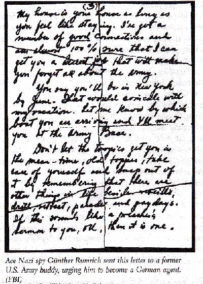 (3)
My house is your house as long as
you feel like staying. I've got a
number of good connections and
am almost 100% sure that I can
get you a decent job that will make
you forget all about the army.
You say you'll be in New York
by June. That would coincide with
my vacation. Let me know on which
boat you are arriving and I'll meet
you at the Army Base.
Don't let the tropics get you in
the mean-time, old topkic, take
care of yourself and snap out of
it by remembering that there are
other things
drill, retreat, parades and paydays.
If this sounds like a preacher's
sermon to you, OK, then it is one.
Ace Nazi spy Günther Rumrich sent this letter to a former
U.S. Army buddy, urging him to become a German agent.
(FBI)